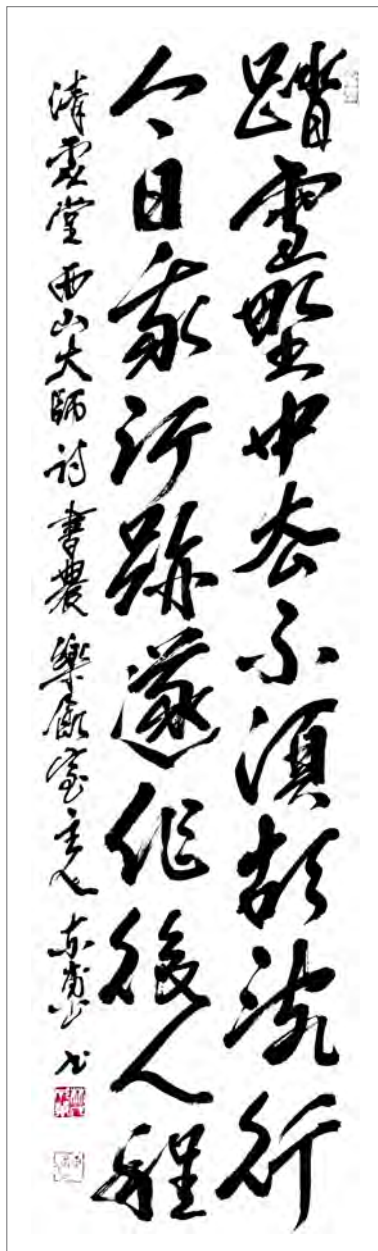 踏雪野中去不須胡亂行
今日我行跡遂作後人程
清虛堂 西山大師 詩 書農 樂飢室主人